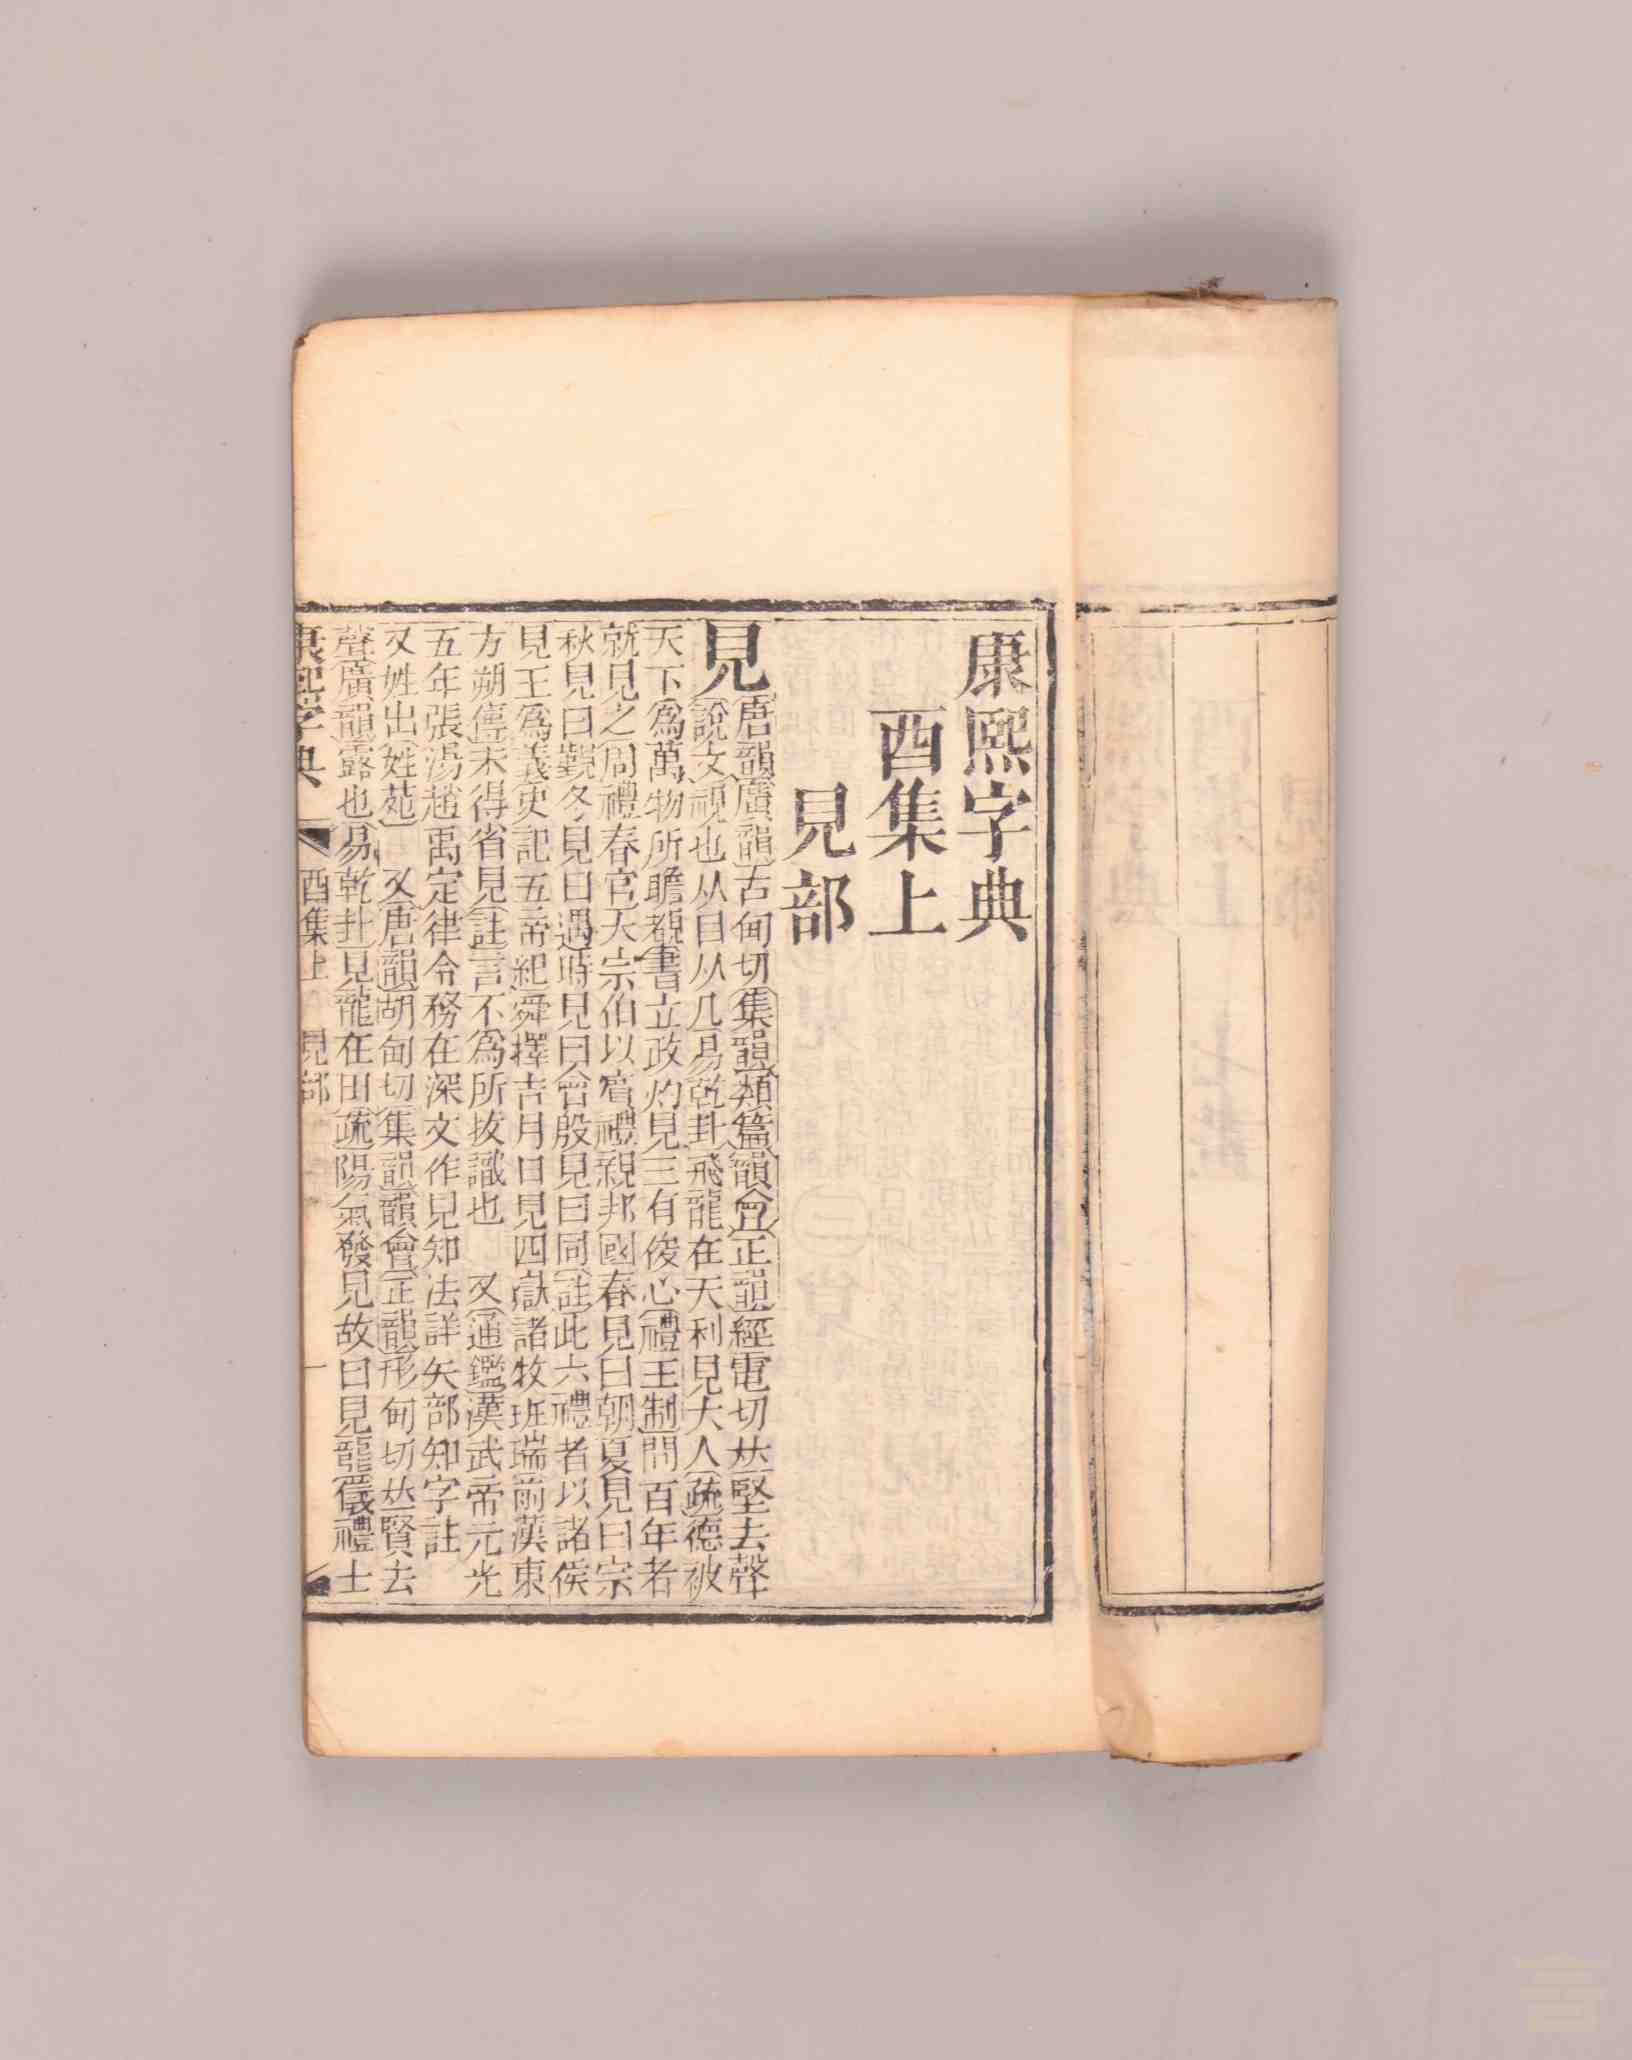 康熙字典
酉集上
見部
見
唐韻廣韻古甸切集韻類篇韻會正韻經電切𠀤堅去聲
說文視也从目从儿易乾卦飛龍在天利見大人疏德被
天下爲萬物所瞻覩書立政灼見三有俊心禮王制問百年者
就見之周禮春官大宗伯以賔禮親邦國春見曰朝夏見曰宗
秋見曰覲冬見曰遇時見曰會殷見曰同註此六禮者以諸侯
見王爲義史記五帝紀舜擇吉月日見四嶽諸牧班瑞前漢東
方朔傳未得省見註言不爲所拔識也 又通鑑漢武帝元光
五年張湯趙禹定律令務在深文作見知法詳矢部知字註
又姓出姓苑 又唐韻胡甸切集韻韻會正韻形甸切𠀤賢去
聲廣韻露也易乾卦見龍在田疏陽氣發見故曰見龍儀禮士
康熙字典 酉集上 見部 一